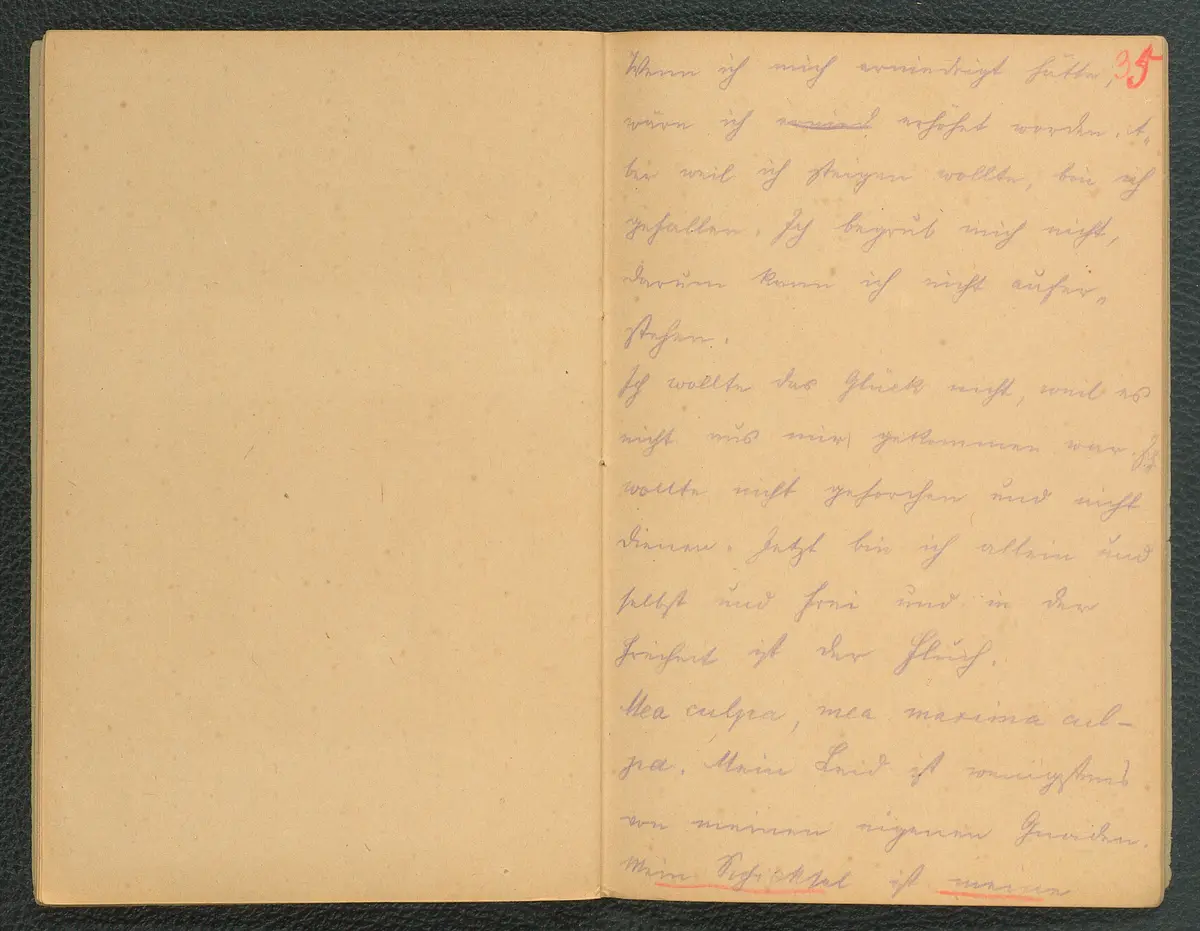 35
Wenn ich mich erniedrigt hätte,
wäre ich ernied erhöht worden. A-
ber weil ich steigen wollte, bin ich
gefallen. Ich begrub mich nicht,
darum kann ich nicht aufer-
stehen.
Ich wollte das Glück nicht, weil es
nicht aus mir gekommen war. Ich
wollte nicht gehorchen und nicht
dienen. Jetzt bin ich allein und
selbst und frei und in der
Freiheit ist der Fluch.
Mea culpa, mea maxima cul-
pa. Mein Leid ist wenigstens
von meinen eigenen Gnaden.
Mein Schicksal ist meine